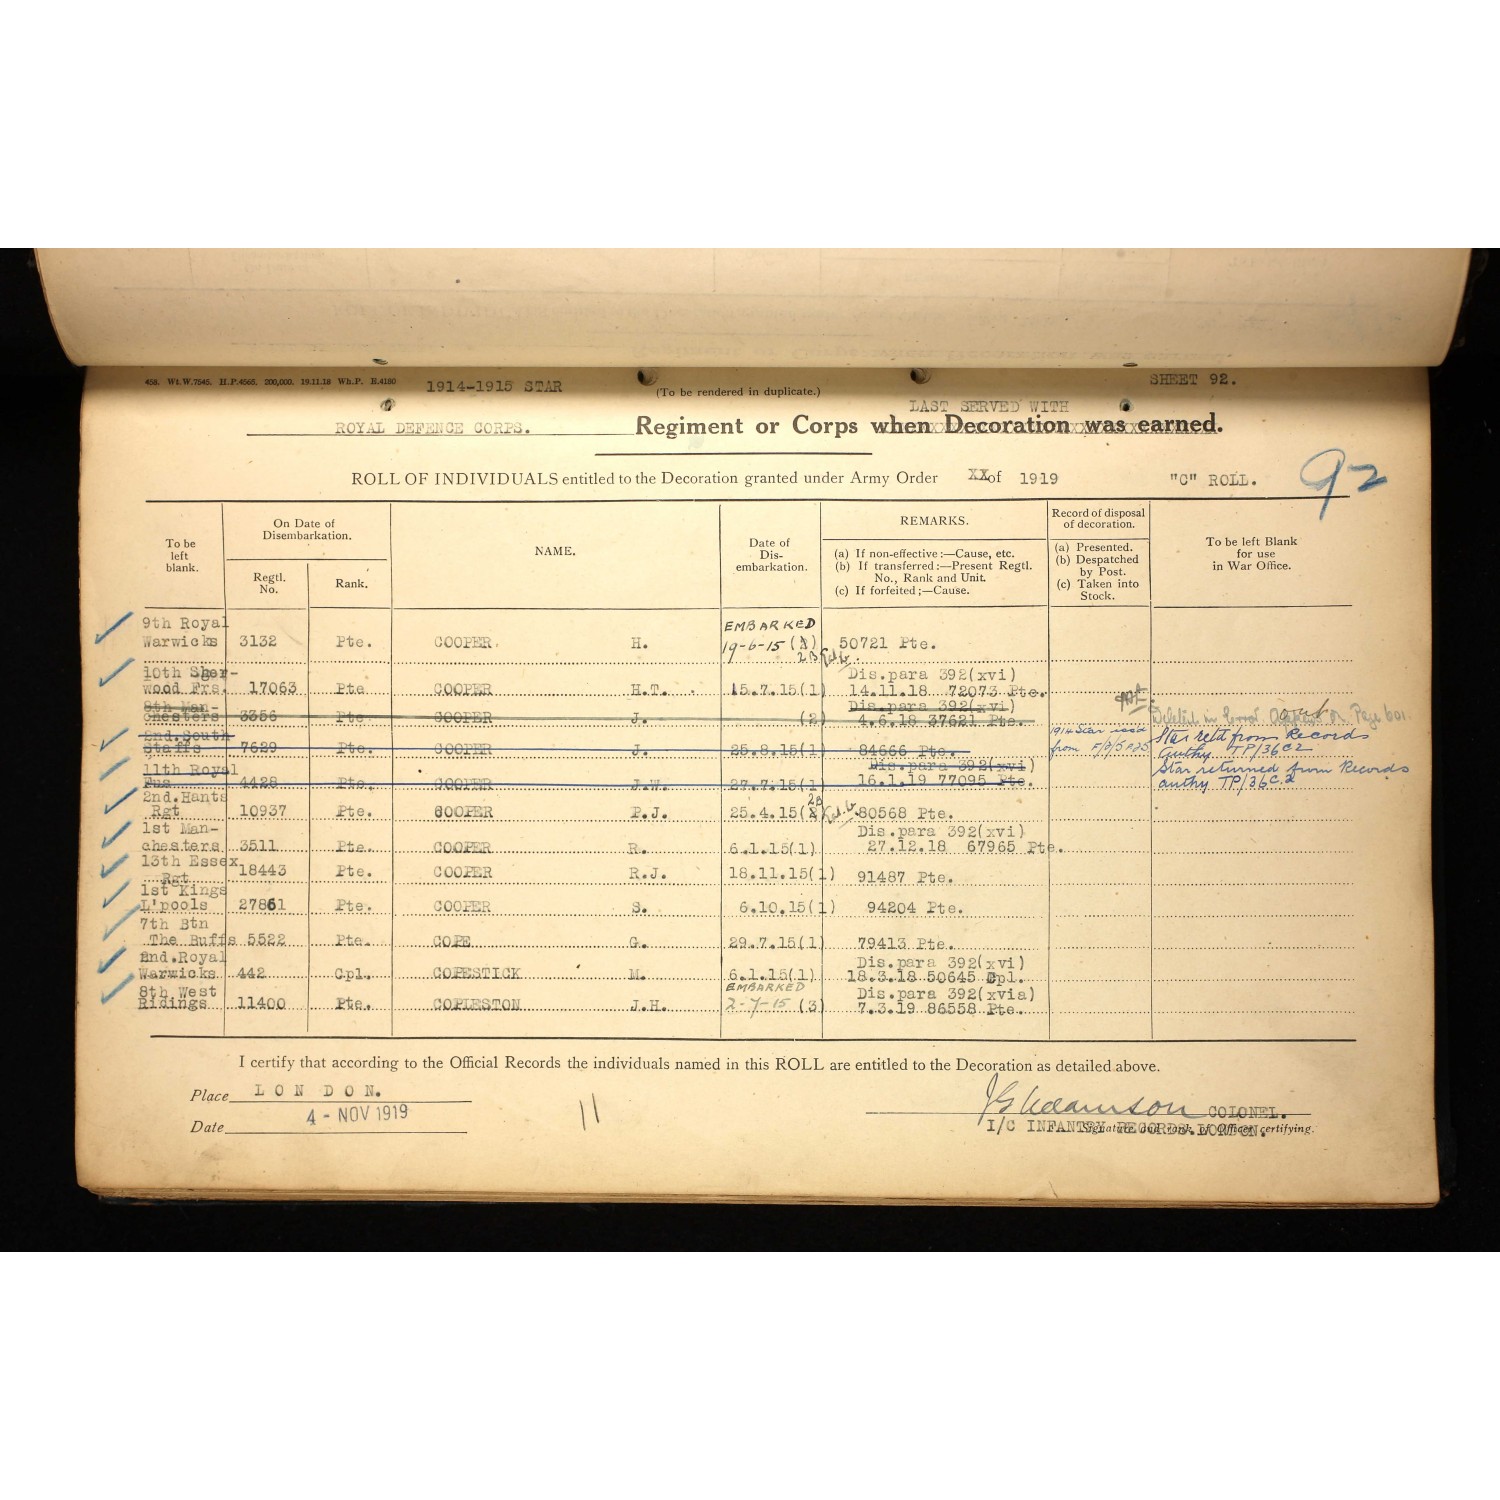 458. Wt. W.7545. H.P.4565. 200,000. 19.11.18 Wh.P. E.4180
1914-1915 STAR
(To be rendered in duplicate.)
SHEET 92.
LAST SERVED WITH
ROYAL DEFENCE CORPS. Regiment or Corps when Decoration was earned.
ROLL OF INDIVIDUALS entitled to the Decoration granted under Army Order XX of 1919 "C" ROLL. 92
To be left blank.
On Date of Disembarkation.
Regtl. No.
Rank.
NAME.
Date of Dis-embarkation.
REMARKS.
(a) If non-effective:—Cause, etc.
(b) If transferred:—Present Regtl. No., Rank and Unit.
(c) If forfeited;—Cause.
Record of disposal of decoration.
(a) Presented.
(b) Despatched by Post.
(c) Taken into Stock.
To be left Blank for use in War Office.
9th Royal EMBARKED
Warwicks 3132 Pte. COOPER. H. 19-6-15 50721 Pte.
2B
10th Sher- Dis.para 392(xvi)
wood Frs. 17063 Pte COOPER H.T. 15.7.15(1) 14.11.18 72073 Pte.
8th Man- Dis.para 392(xvi)
chesters 3356 Pte COOPER J. (2) 4.6.18 37621 Pte. Deleted in Error Page 601.
2nd.South 1914 Star Star retd from Records
Staffs 7629 Pte. COOPER J. 25.8.15(1) 84666 Pte. from authy TP/36C2
11th Royal Dis.para 392(xvi) Star returned from Records
Fus 4428 Pte. COOPER J.W. 27.7.15(1) 16.1.19 77095 Pte. authy TP/36C.2
2nd.Hants 2B
Rgt 10937 Pte. COOPER P.J. 25.4.15 80568 Pte.
1st Man- Dis.para 392(xvi)
chesters 3511 Pte. COOPER R. 6.1.15(1) 27.12.18 67965 Pte.
13th Essex
Rgt 18443 Pte. COOPER R.J. 18.11.15(1) 91487 Pte.
1st Kings
L'pools 27861 Pte. COOPER S. 6.10.15(1) 94204 Pte.
7th Btn
The Buffs 5522 Pte. COPE G. 29.7.15(1) 79413 Pte.
2nd.Royal Dis.para 392(xvi)
Warwicks 442 Cpl. COPESTICK M. 6.1.15(1) 18.3.18 50645 Cpl.
8th West EMBARKED Dis.para 392(xvia)
Ridings 11400 Pte. COPLESTON J.H. 2-7-15 (3) 7.3.19 86558 Pte.
I certify that according to the Official Records the individuals named in this ROLL are entitled to the Decoration as detailed above.
Place LONDON.
Date 4-NOV 1919
11
COLONEL.
I/C INFANTRY RECORDS.LONDON.
Signature and rank of Officer certifying.